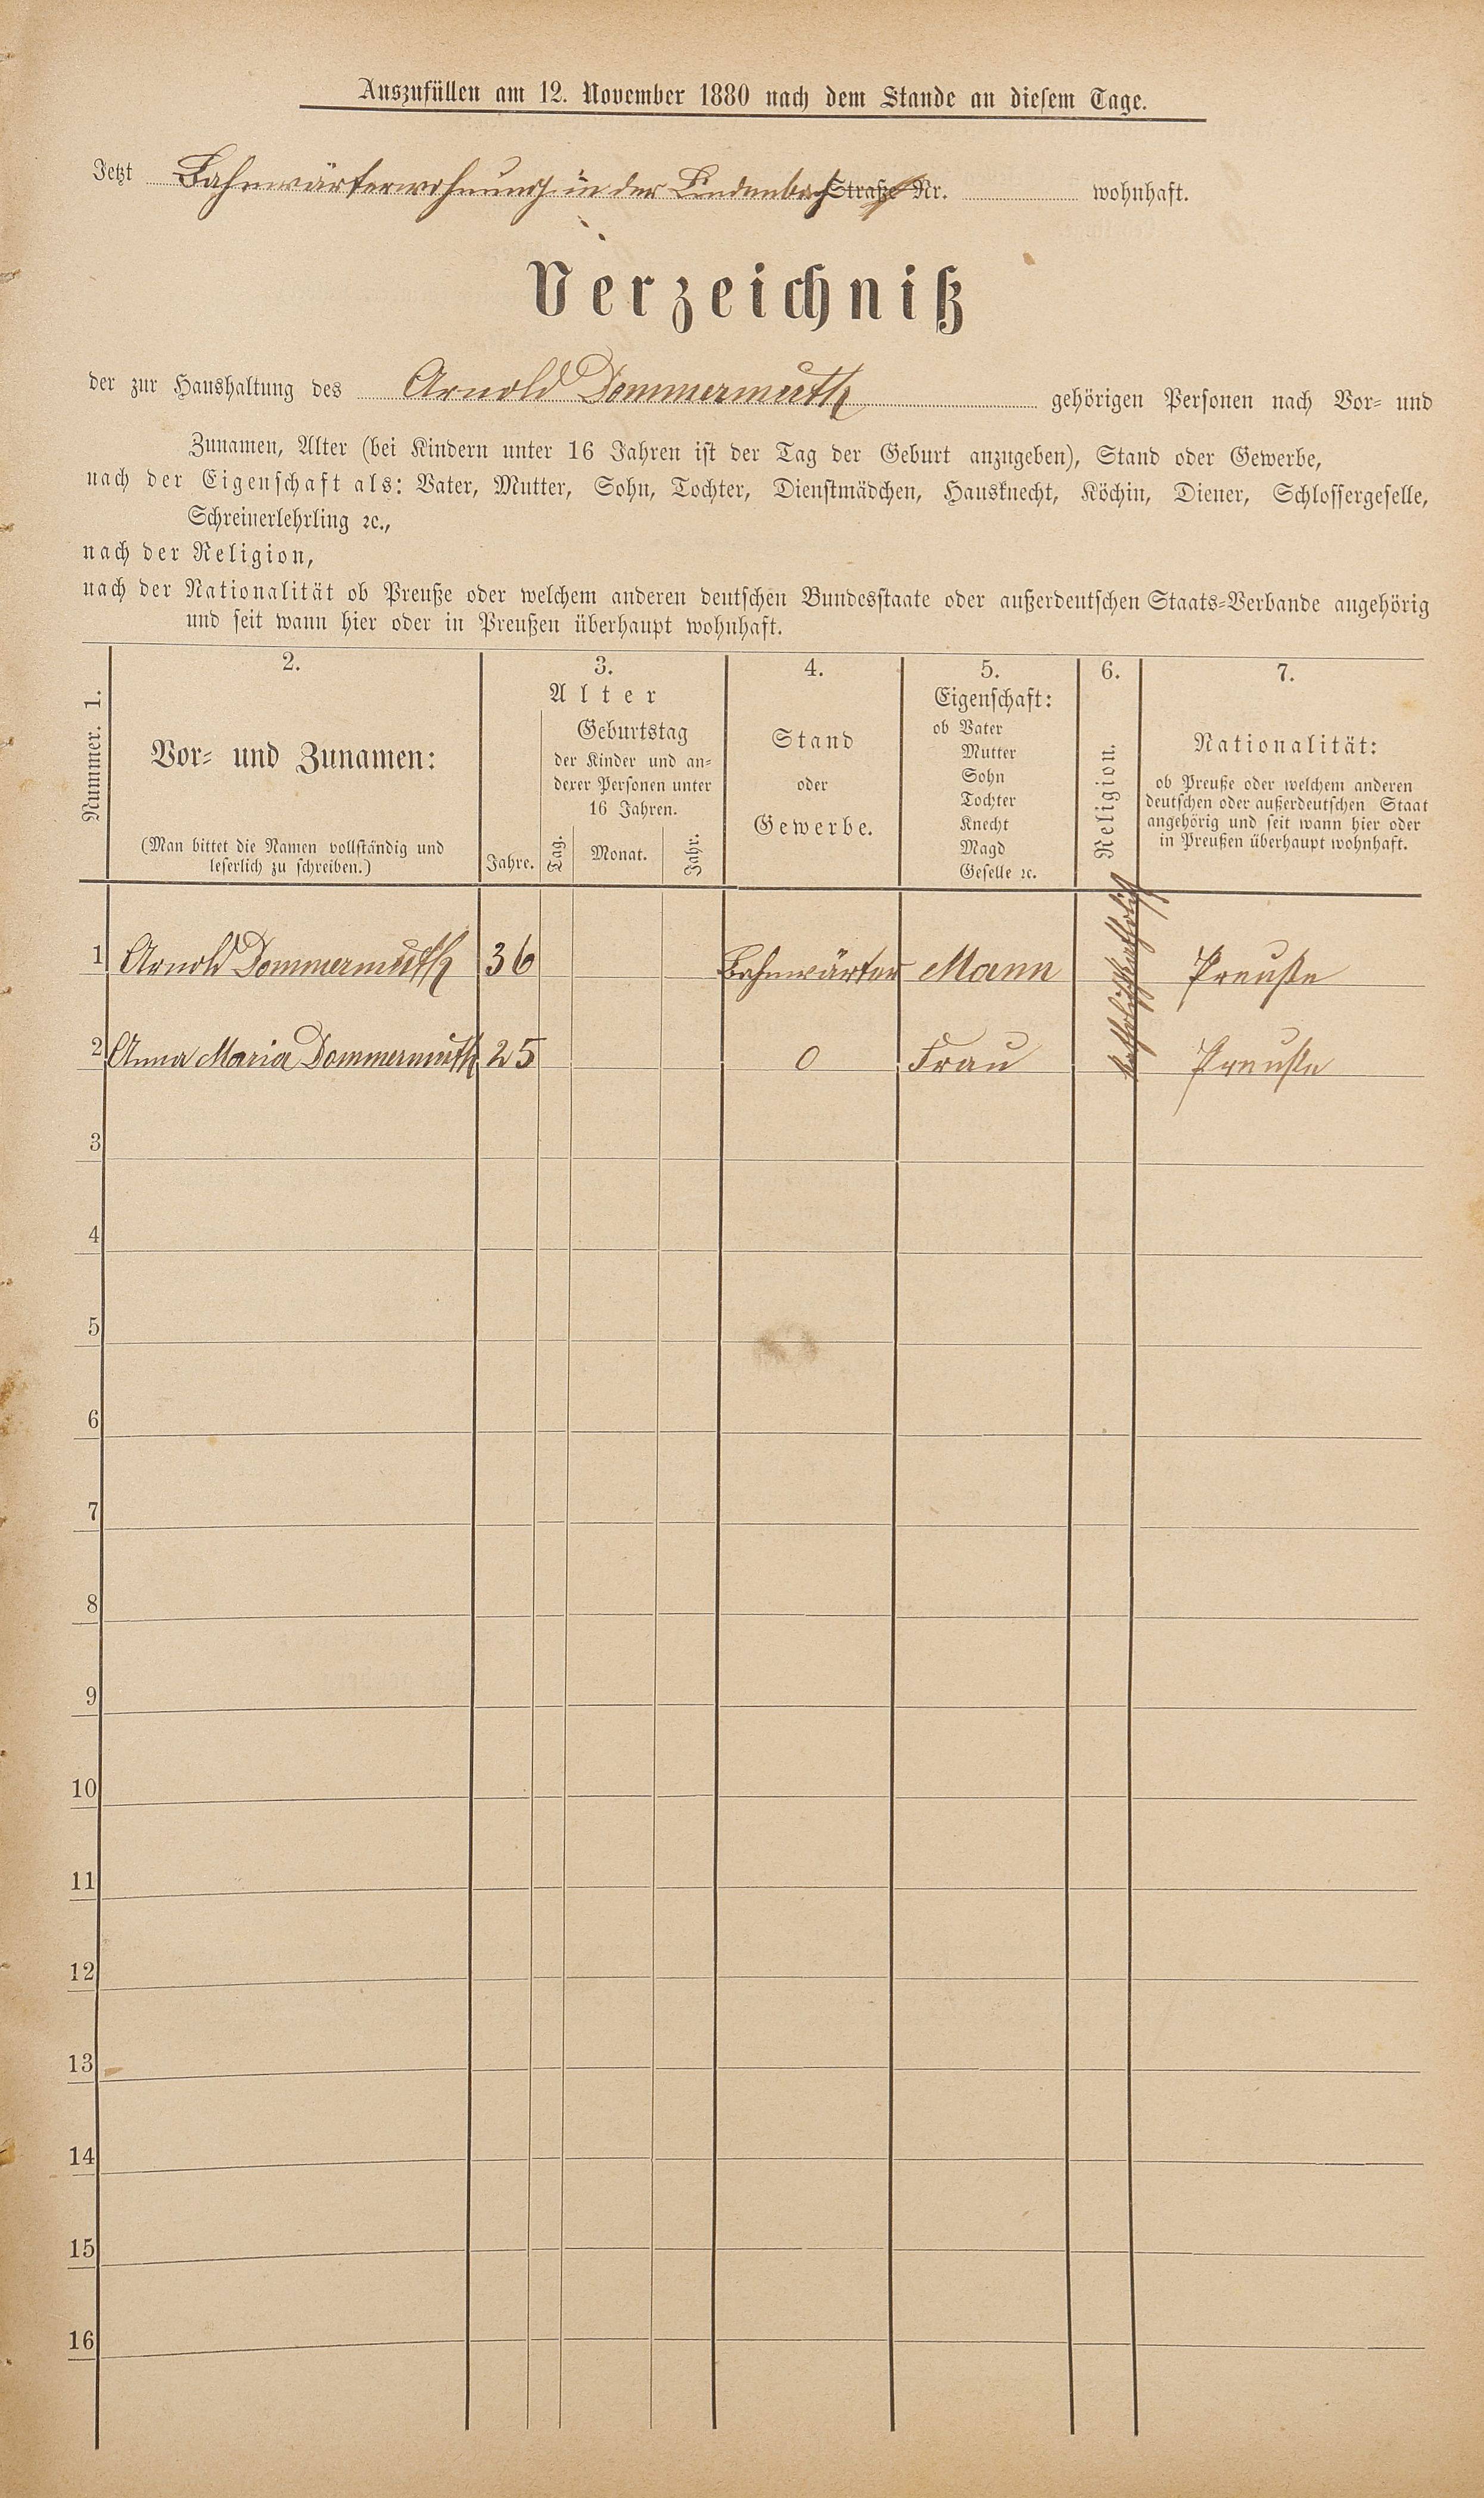 Auszufüllen am 12. November 1880 nach dem Stande an diesem Tage.
Jetzt Bahnwärterwohnung in der Lindenbach Straße Nr. wohnhaft.
Verzeichniß
der zur Haushaltung des Arnold Dommermuth gehörigen Personen nach Vor- und
Zunamen, Alter (bei Kindern unter 16 Jahren ist der Tag der Geburt anzugeben), Stand oder Gewerbe,
nach der Eigenschaft als: Vater, Mutter, Sohn, Tochter, Dienstmädchen, Hausknecht, Köchin, Diener, Schlossergeselle,
Schreinerlehrling ꝛc.,
nach der Religion,
nach der Nationalität ob Preuße oder welchem anderen deutschen Bundesstaate oder außerdeutschen Staats-Verbande angehörig
und seit wann hier oder in Preußen überhaupt wohnhaft.
Nummer. 1.
2.
Vor- und Zunamen:
(Man bittet die Namen vollständig und
leserlich zu schreiben.)
3.
Alter
Jahre.
Geburtstag
der Kinder und an-
derer Personen unter
16 Jahren.
Tag. Monat. Jahr.
4.
Stand
oder
Gewerbe.
5.
Eigenschaft:
ob Vater
Mutter
Sohn
Tochter
Knecht
Magd
Geselle ꝛc.
6.
Religion.
7.
Nationalität:
ob Preuße oder welchem anderen
deutschen oder außerdeutschen Staat
angehörig und seit wann hier oder
in Preußen überhaupt wohnhaft.
1 Arnold Dommermuth 36 Bahnwärter Mann katholisch Preuße
2 Anna Maria Dommermuth 25 0 Frau katholisch Preuße
3
4
5
6
7
8
9
10
11
12
13
14
15
16